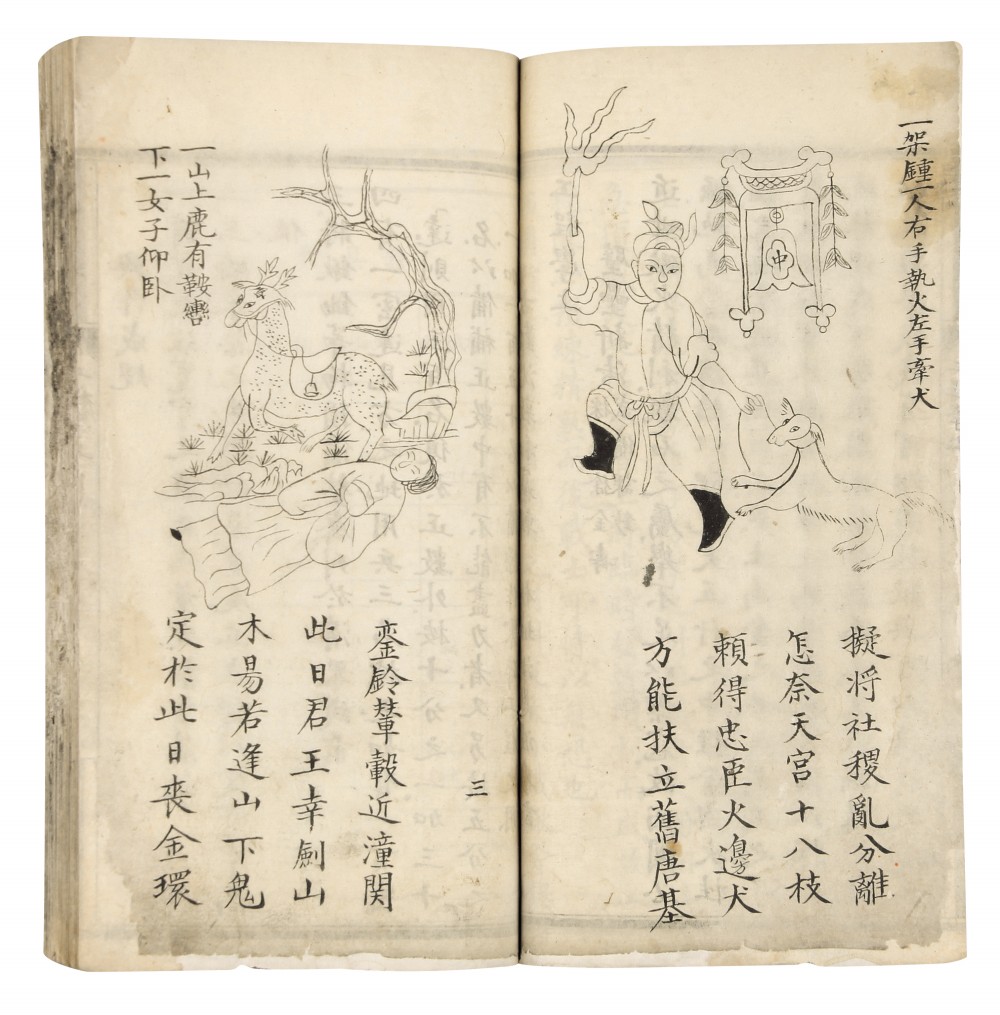 一架鍾一人右手執火左手牽犬
擬将社稷亂分離
怎奈天宮十八枝
頼得忠臣火邊犬
方能扶立舊唐基
三
一山上鹿有鞍轡
下一女子仰卧
銮鈴輦轂近潼関
此日君王幸劍山
木易若逢山下鬼
定於此日喪金環